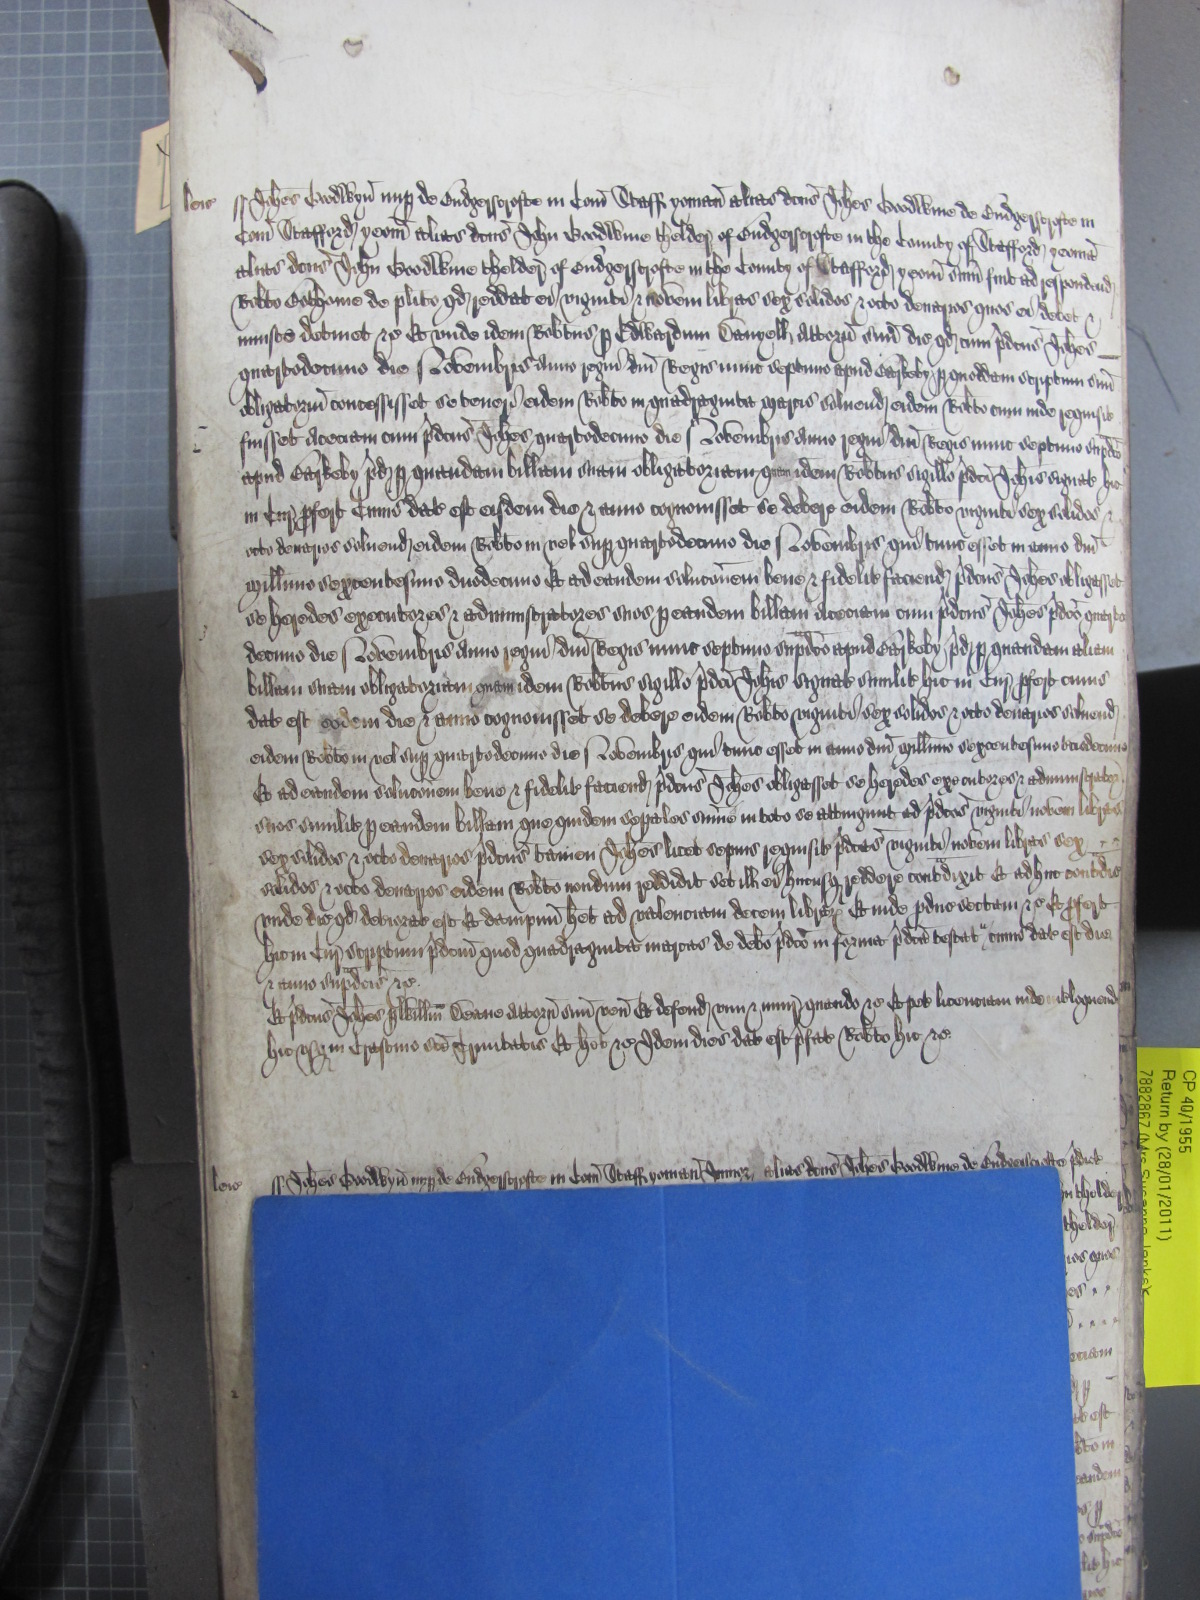 leic ss Johes Goodwyn nup de Endgerscrofte in Com Staff yoman alias dcus Johes Goodwine de Endgerscrofte in
Com Stafford yeom alias dcus John Goodwine thelder of Endgerscrofte in the County of Stafford yeoma
alias dcus John Goodwine thelder of Endgerscrofte in the County of Stafford yeom sum fuit ad respondend
Robto de plito qd reddat ei viginti & novem libras sex solidos & octo denarios quos ei debet &
iniuste detinet &c Et unde idem Robtus p Edwardum Attorn suu dic qd cum pdcus Johes
quartodecimo die Novembris anno regni dni Regis nunc septimo apud p quoddam scriptum suu
obligatoriu concessisset se teneri eidem Robto in quadraginta marcis solvend eidem Robto cum inde requisit
fuisset Acetiam cum pdcus Johes quartodecimo die Novembris anno regni dni Regis nunc septimo supdco
apud pd p quandam billam suam obligatoriam quam idem Robtus sigillo pdci Johis signat hic
in Cur pfert Cuius dat est eisdem die & anno cognovisset se debere eidem Robto viginti sex solidos &
octo denarios solvend eidem Robto in vel sup quartodecimo die Novembris qui tunc esset in anno dni
millimo sexcentesimo duodecimo Et ad eandem solucoem bene & fidelit faciend pdcus Johes obligasset
se heredes executores & administratores suos p eandem billam Acetiam cum pdcus Johes pdco quarto
decimo die Novembris anno regni dni Regis nunc septimo supdco apud pd p quandam aliam
billam suam obligatoriam quam idem Robtus sigillo pdci Johis signat similit hic in Cur pfert cuius
dat est eodem die & anno cognovisset se debere eidem Robto viginti sex solidos & octo denarios solvend
eidem Robto in vel sup quartodecimo die Novembris qui tunc esset in anno dni millimo sexcentesimo tciodecimo
Et ad eandem solucoem bene & fidelit faciend pdcus Johes obligasset se heredes executores & administrator
suos similit p eandem billam que quidem sepales sume in toto se attingunt ad pdcas viginti novem libras
sex solidos & octo denarios pdcus tamen Johes licet sepius requisit pdcas viginti novem libras sex
solidos & octo denarios eidem Robto nondum reddidit set ill ei hucusq reddere contradixit Et adhuc contradic
unde dic qd deteriorat est Et dampnu het ad valenciam decem librar Et inde pduc sectam &c Et pfert
hic in Cur scriptum pdcm quod quadraginta marcas de debo pdco in forma pdca testat cuius dat est die
& anno supdcis &c
Et pdcus Johes p Willm Deane Attorn suu ven Et defend vim & iniur quando &c Et pet licenciam inde interloquend
hic usq in Crastino sce Trinitatis Et het &c Idem dies dat est pfat Robto hic &c
leic ss Johes Goodwyn nup de Endgerscrofte in Com Staff yoman Junior alias dcus Johes Goodwine de Endgerscrofte pdict
CP 40/1955
Return by (28/01/2011)
7882867